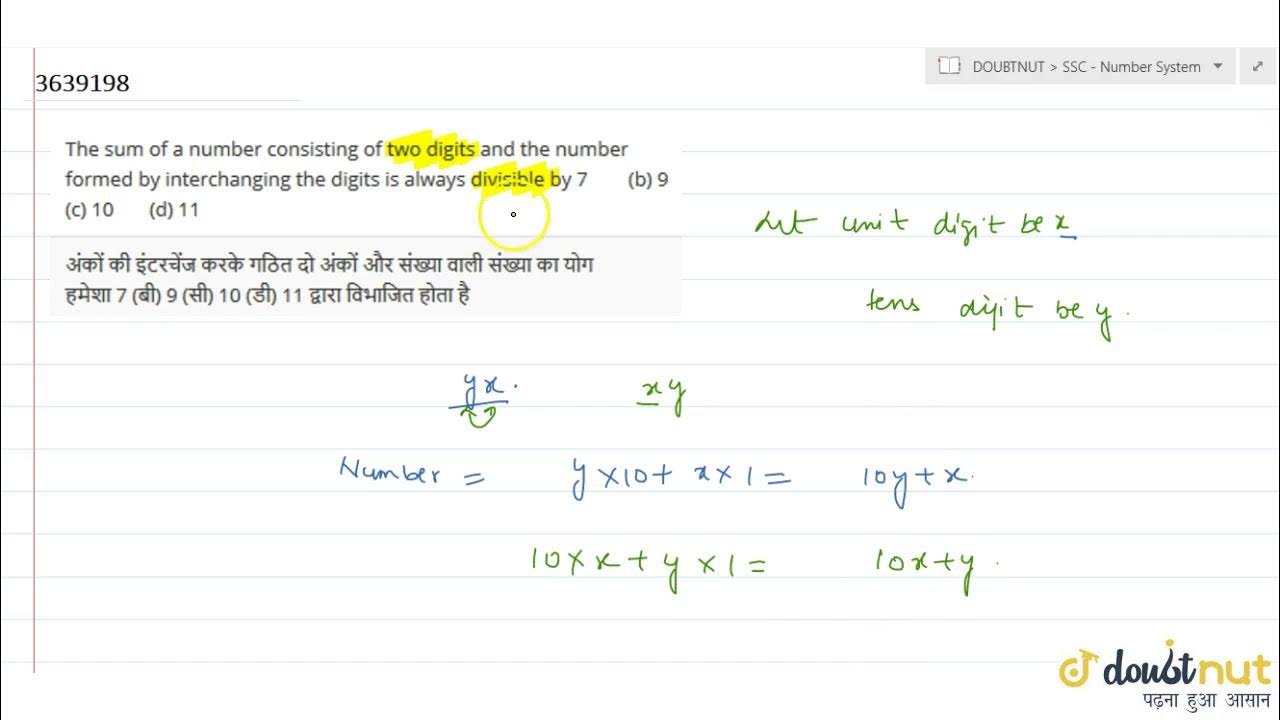 3639198
DOUBTNUT > SSC - Number System
The sum of a number consisting of two digits and the number
formed by interchanging the digits is always divisible by 7 (b) 9
(c) 10 (d) 11
अंकों की इंटरचेंज करके गठित दो अंकों और संख्या वाली संख्या का योग
हमेशा 7 (बी) 9 (सी) 10 (डी) 11 द्वारा विभाजित होता है
Let unit digit be x
tens digit be y.
yx. xy
Number = y×10+ x×1 = 10y+x.
10×x+y×1= 10x+y.
doubtnut
पढ़ना हुआ आसान